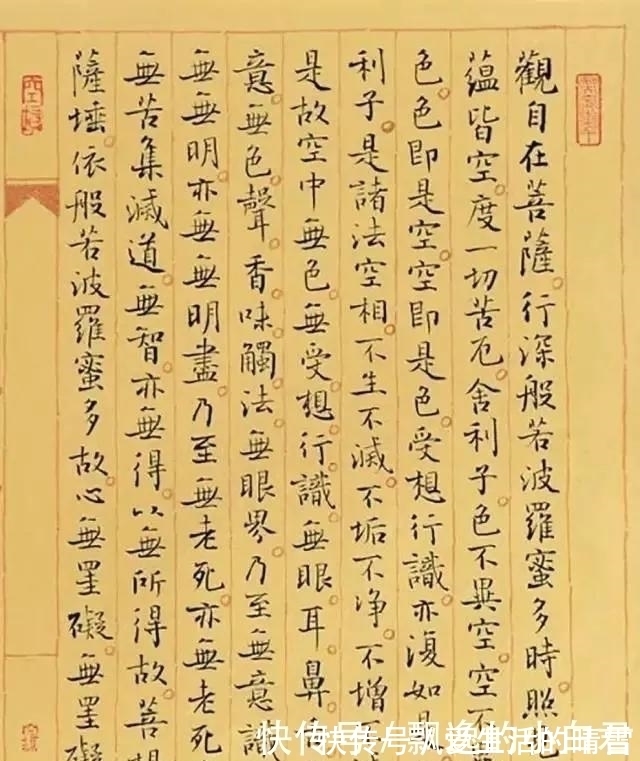 觀自在菩薩行深般若波羅蜜多時照
蘊皆空度一切苦厄舍利子色不異空空不
色色即是空空即是色受想行識亦復如是
利子是諸法空相不生不滅不垢不净不增
是故空中無色無受想行識無眼耳鼻
意無色聲香味觸法無眼界乃至無意識
無無明亦無無明盡乃至無老死亦無老死
無苦集滅道無智亦無得以無所得故菩提
薩埵依般若波羅蜜多故心無罣礙無罣礙
快传号